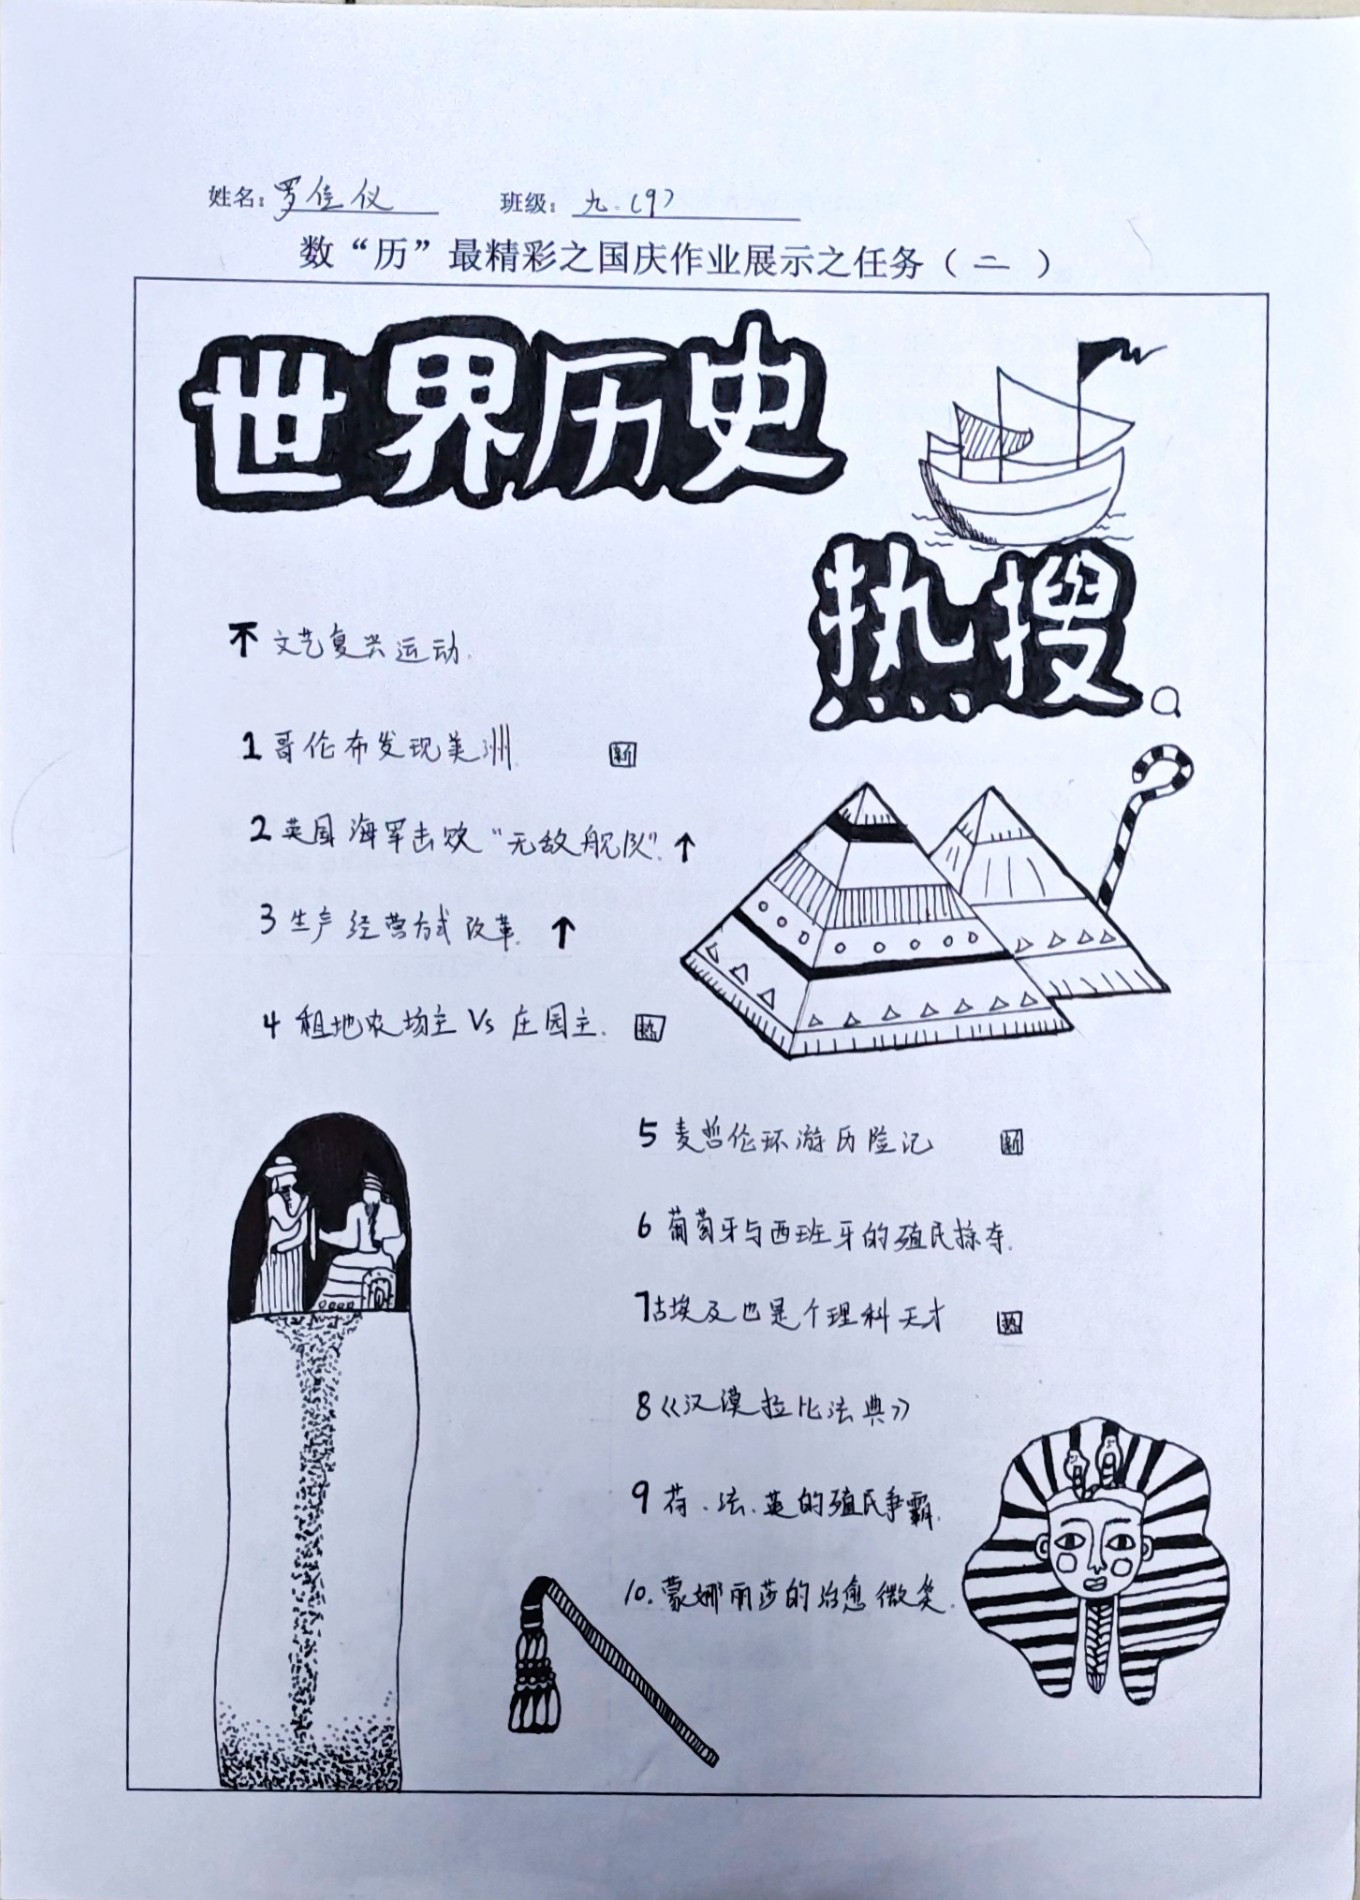 姓名：罗佳仪 班级：九.（9）
数“历”最精彩之国庆作业展示之任务（二）
世界历史
热搜
不 文艺复兴运动.
1 哥伦布发现美洲. 新
2 英国海军击败“无敌舰队”. ↑
3 生产经营方式改革. ↑
4 租地农场主 Vs 庄园主. 热
5 麦哲伦环游历险记 新
6 葡萄牙与西班牙的殖民掠夺.
7 古埃及也是个理科天才 热
8《汉漠拉比法典》
9 荷.法.英的殖民争霸.
10. 蒙娜丽莎的治愈微笑.